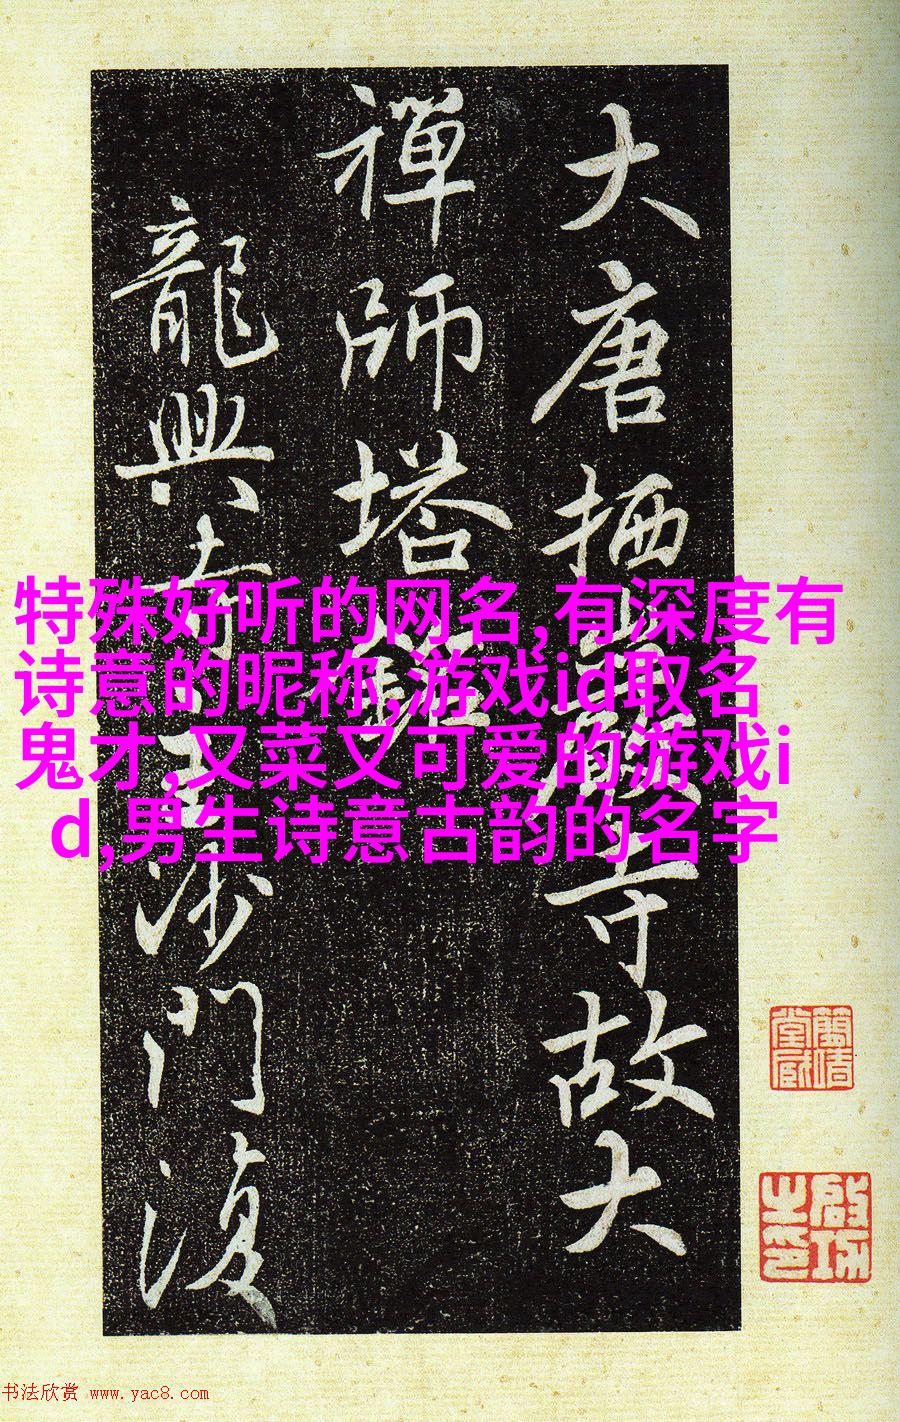 大唐栖巖寺故大
禪師塔銘
龍興寺主沙門復
特殊好听的网名,有深度有
诗意的昵称,游戏id取名
鬼才,又菜又可爱的游戏i
d,男生诗意古韵的名字
啟功之印
书法欣赏 www.yac8.com